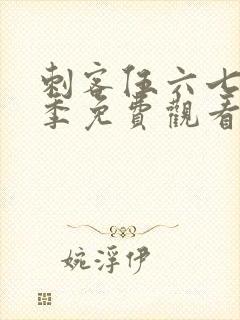 刺客伍六七
季免費觀看
婉浮伊